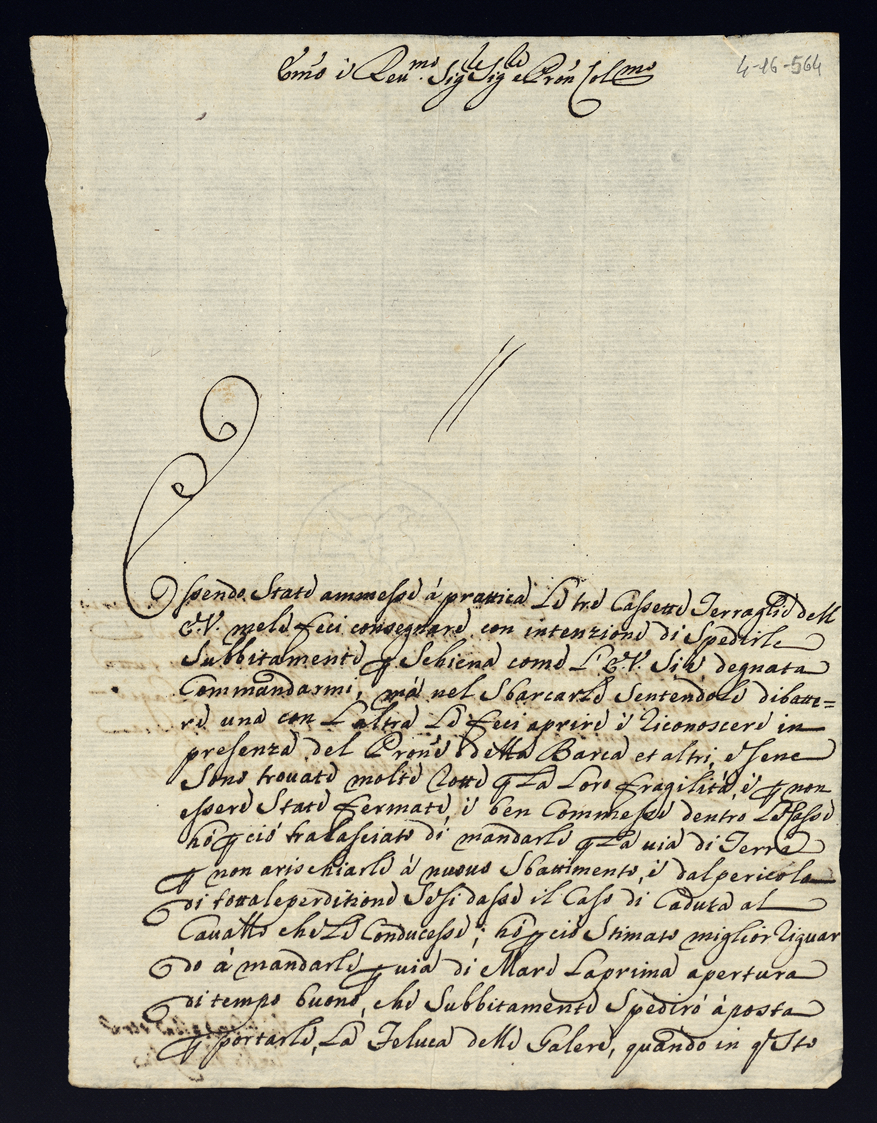 Emo e Reumo. Sigre Sigre e Prõn Colmo
4-16-564
Essendo State ammesse á prattica Le tre Cassette Terraglie dell
E.V. mele feci consegnare con intenzione di Spedirle
Subbitamente p Schiena come L'E.V. Si é degnata
Commandarmi, má nel Sbarcarle Sentendole dibatte=
re una con L'altra Le feci aprire é riconoscere in
presenza del Prone detta Barca et altri, e Sene
Sono trouate molte rotte p La Loro fragilitá, é p non
essere State fermate, é ben Commesse dentro Le Casse
hó pció tralasciato di mandarle p La uia di Terra
p non arischiarle á nuouo Sbattimento, é dal pericolo
di total e perditione Se Si dasse il Caso di Caduta al
Cauallo che Le Conducesse; hó pció Stimato miglior riguar
do á mandarle p uia di Mare La prima apertura
di tempo buono, che Subbitamente Spediró á posta
p portarle, La Feluca delle Galere, quando in q Sto